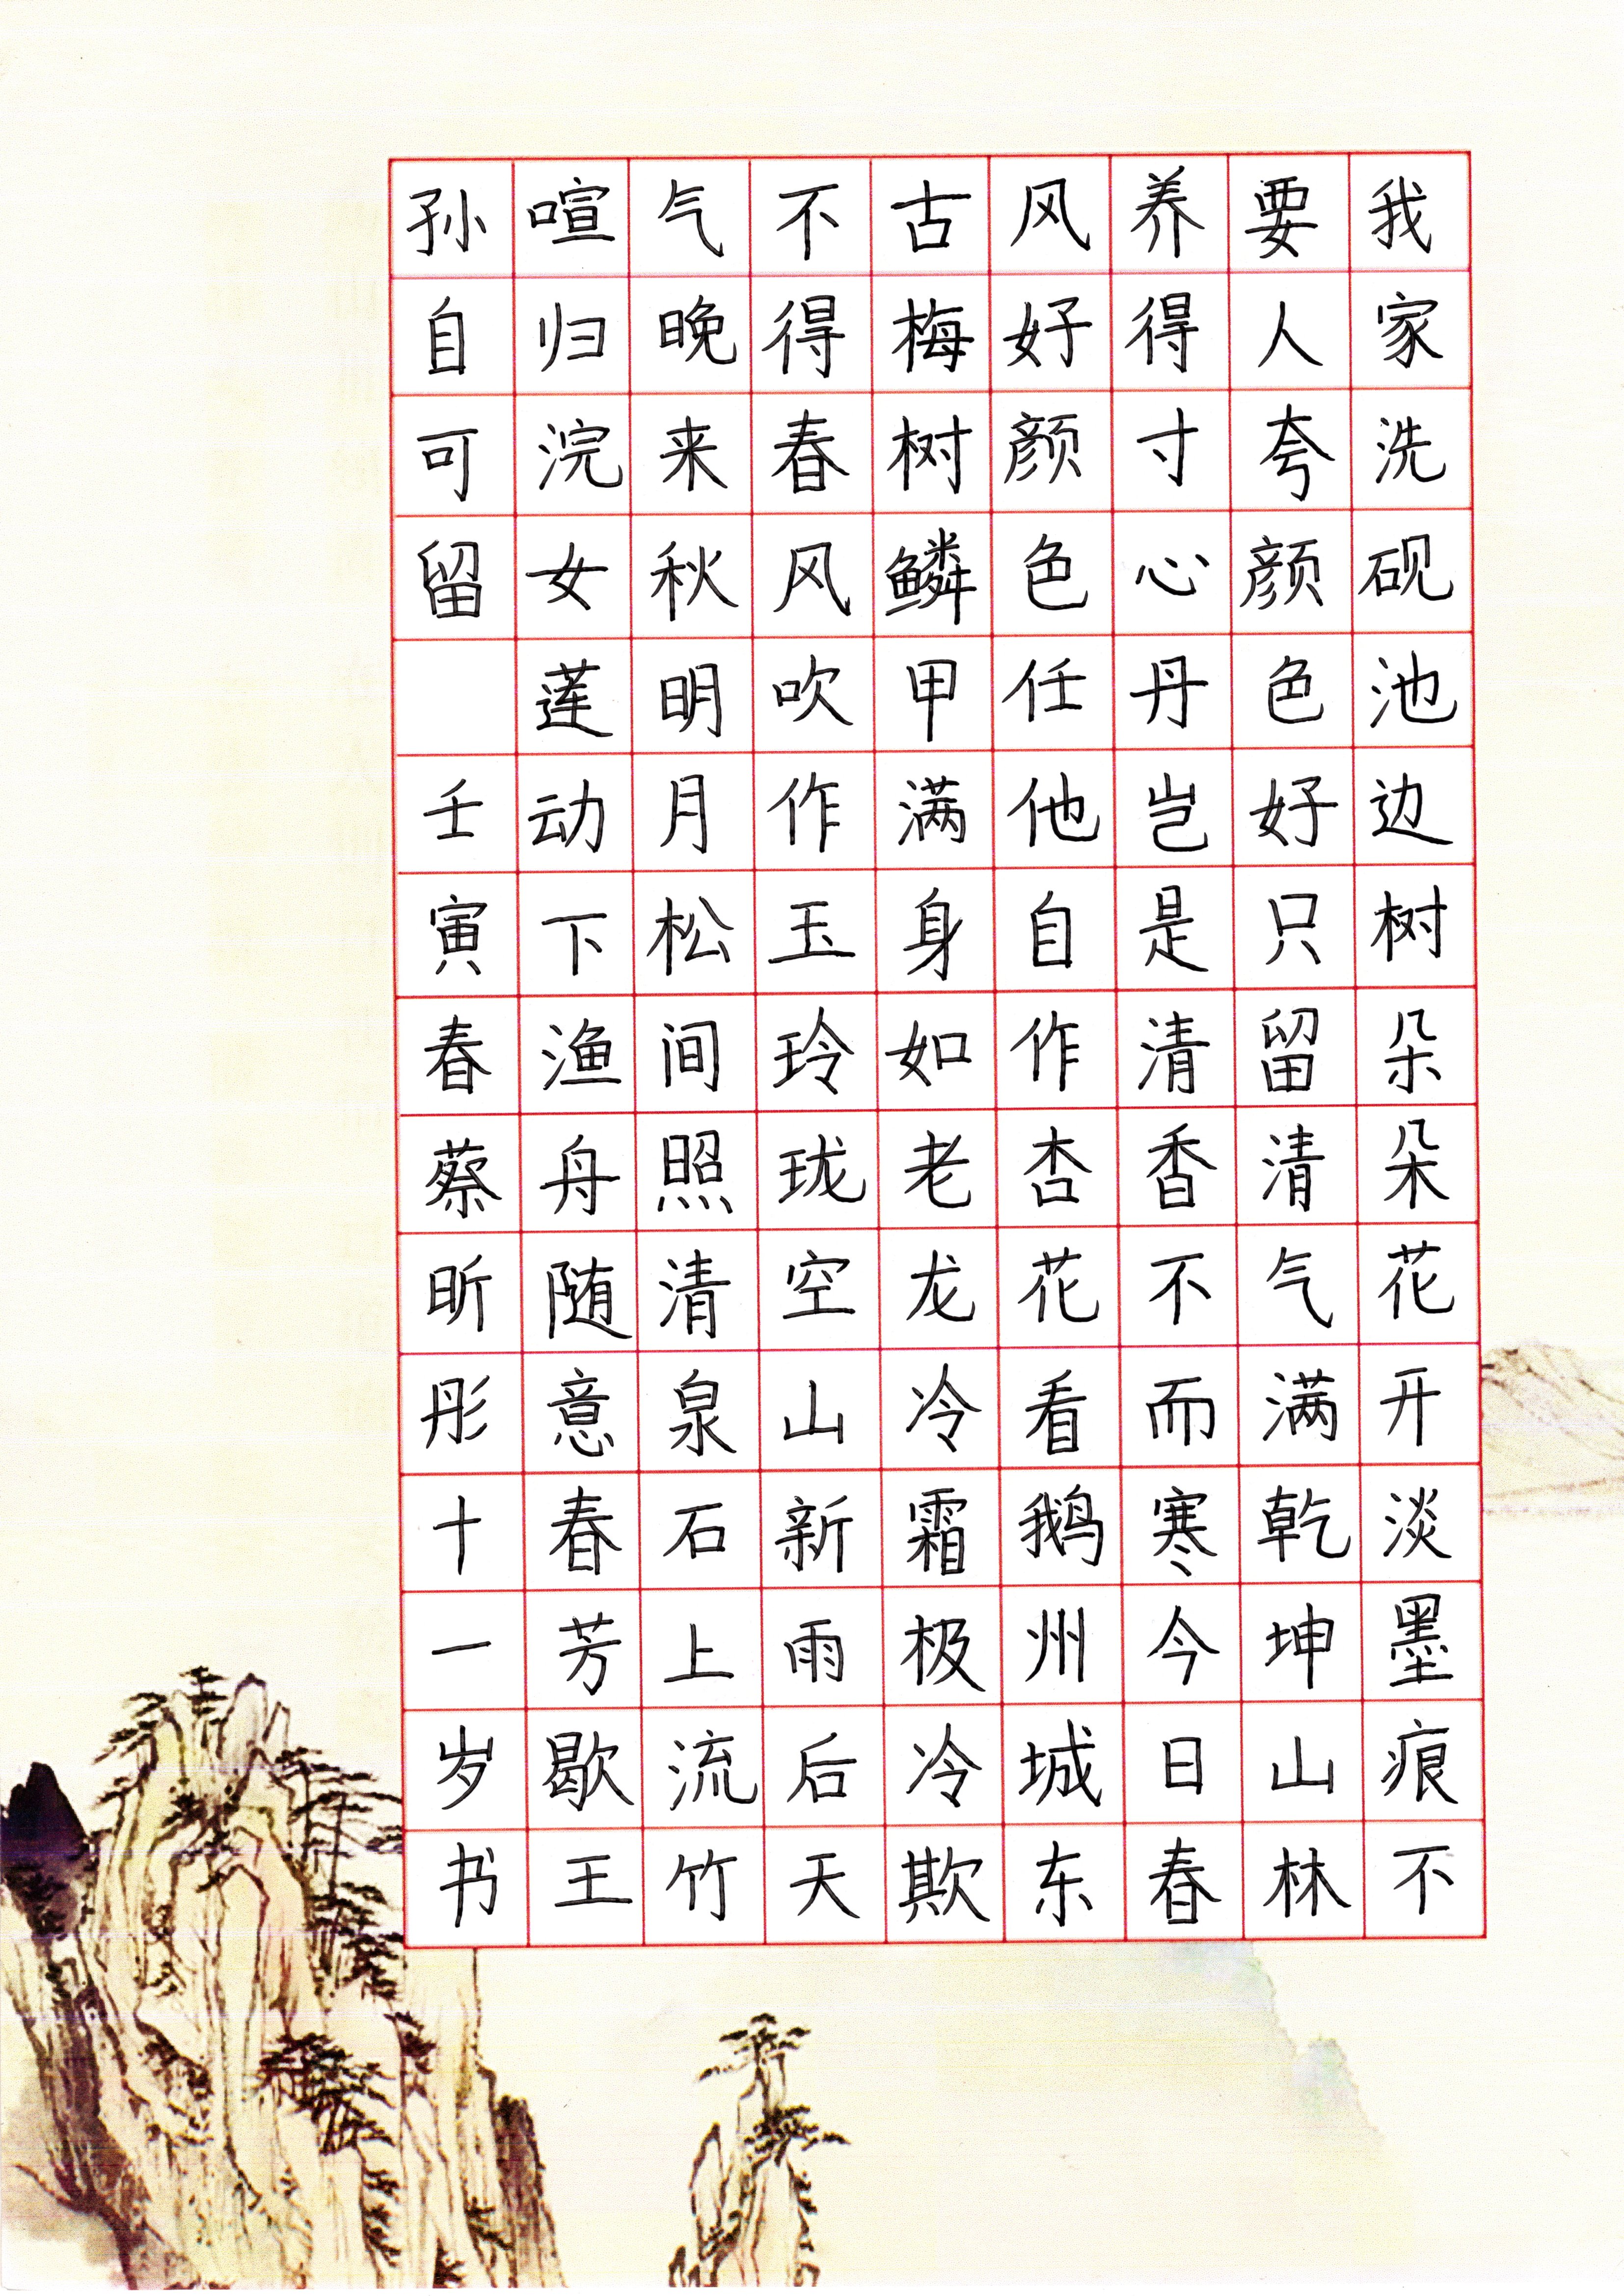 我家洗砚池边树朵朵花开淡墨痕不
要人夸颜色好只留清气满乾坤山林
养得寸心丹岂是清香不而寒今日春
风好颜色任他自作杏花看鹅州城东
古梅树鳞甲满身如老龙冷霜极冷欺
不得春风吹作玉玲珑空山新雨后天
气晚来秋明月松间照清泉石上流竹
喧归浣女莲动下渔舟随意春芳歇王
孙自可留 壬寅春蔡昕彤十一岁书